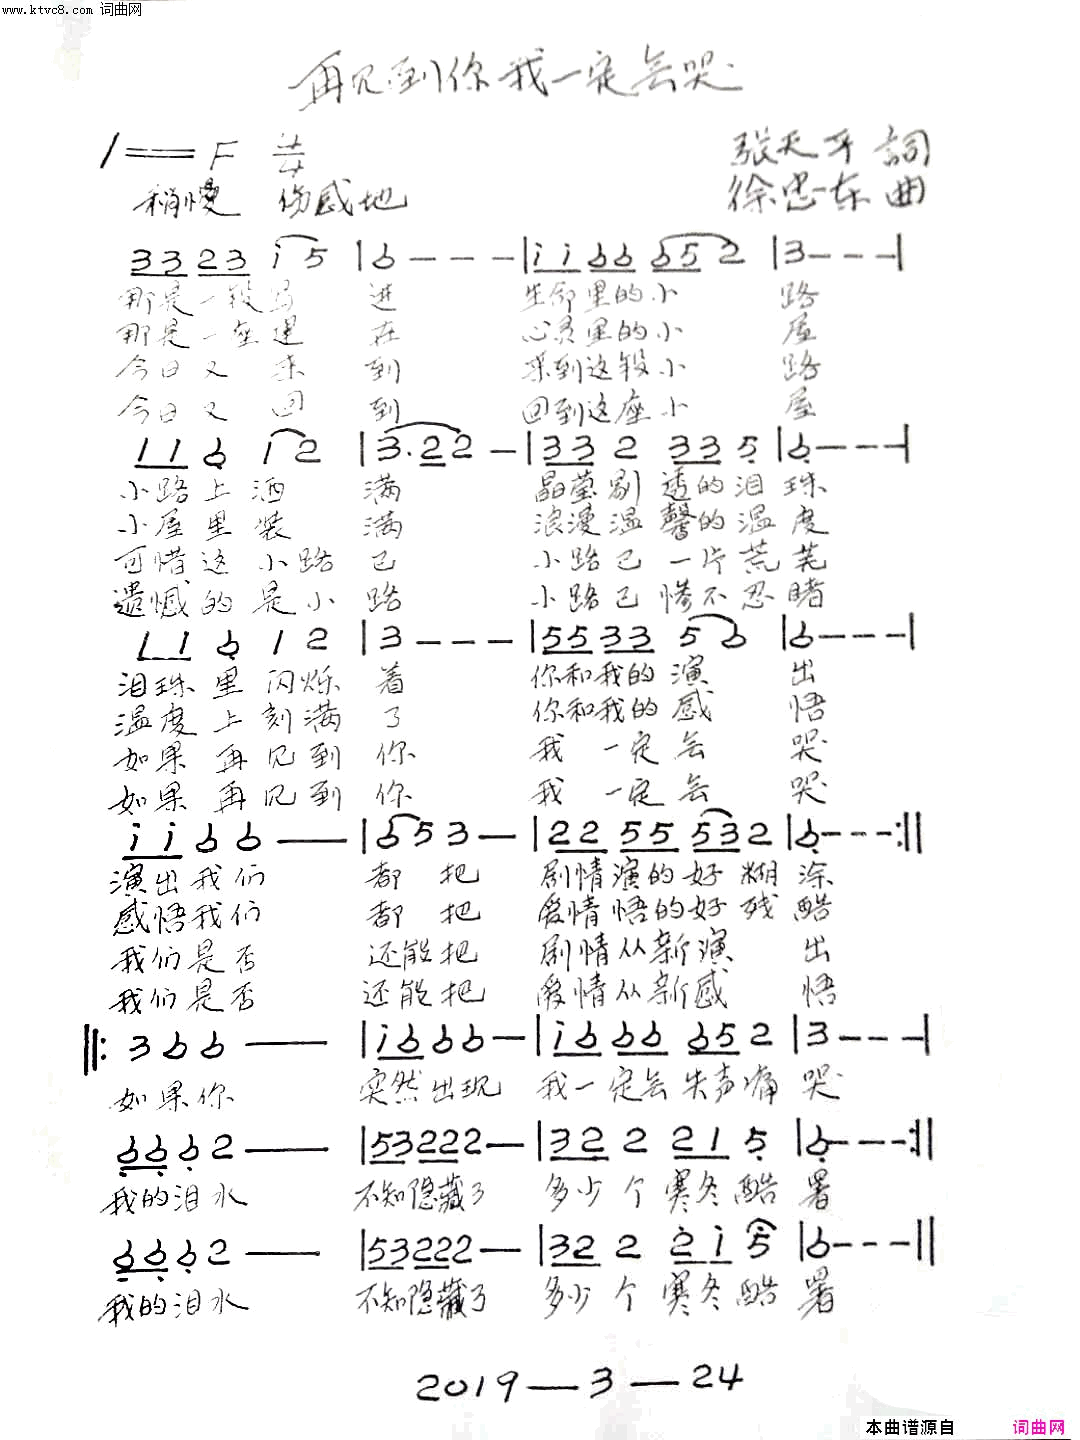 www.ktvc8.com 词曲网
再见到你我一定会哭
1==F 4/4
张天平 詞
稍慢 伤感地
徐忠东 曲
3323 i5 |6---|ii66 652 |3---|
那是一段写 进 生命里的小 路
那是一座建 在 心灵里的小 屋
今日又 来 到 来到这段小 路
今日又 回 到 回到这座小 屋
116 12 |3.22 -|332 335 |6---|
小路上洒 满 晶莹剔透的泪 珠
小屋里装 满 浪漫温馨的温 度
可惜这小路 已 小路已一片荒 芜
遗憾的是小 路 小路已惨不忍 睹
116 12 |3---|5533 56 |6---|
泪珠里闪烁 着 你和我的演 出
温度上刻满 了 你和我的感 悟
如果再见到 你 我一定会 哭
如果再见到 你 我一定会 哭
ii66 —|653 -|2255 532 |6---:||
演出我们 都把 剧情演的好糊 涂
感悟我们 都把 爱情悟的好残 酷
我们是否 还能把 剧情从新演 出
我们是否 还能把 爱情从新感 悟
||:366 —|i666 -|i666 652 |3---|
如果你 突然出现 我一定会失声痛 哭
6662 —|53222 -|322 215 |6---:||
我的泪水 不知隐藏了 多少个寒冬酷 暑
6662 —|53222 -|322 2i5 |6---||
我的泪水 不知隐藏了 多少个寒冬酷 暑
2019—3—24
本曲谱源自 词曲网